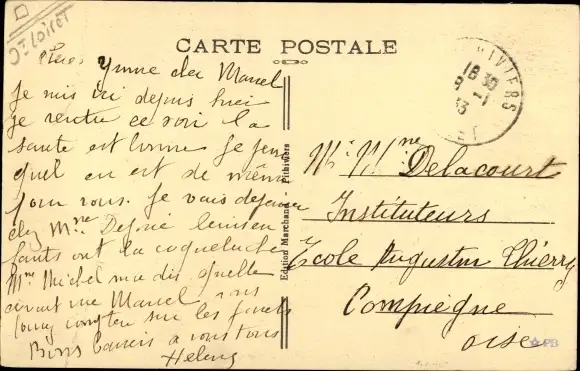 Dt Loiret
CARTE POSTALE
Yvonne cher Marcel
Je suis ici depuis hier
je rentre ce soir la
santé est bonne je pense
quel en est de même
pour vous. Je vais dejeuner
chez Mme les en
fants ont la coqueluche
Mme Michel ma dis quelle
avait vue Marcel nous
conpton sur les
Bons baisers a vous tous
Helene
Edition Marchand - Pithiviers
PITHIVIERS
18 30
8 -1
33
LOIRET
Mr Mme Delacourt
Instituteurs
Ecole Augustin Thierry
Compiègne
Oise
PB